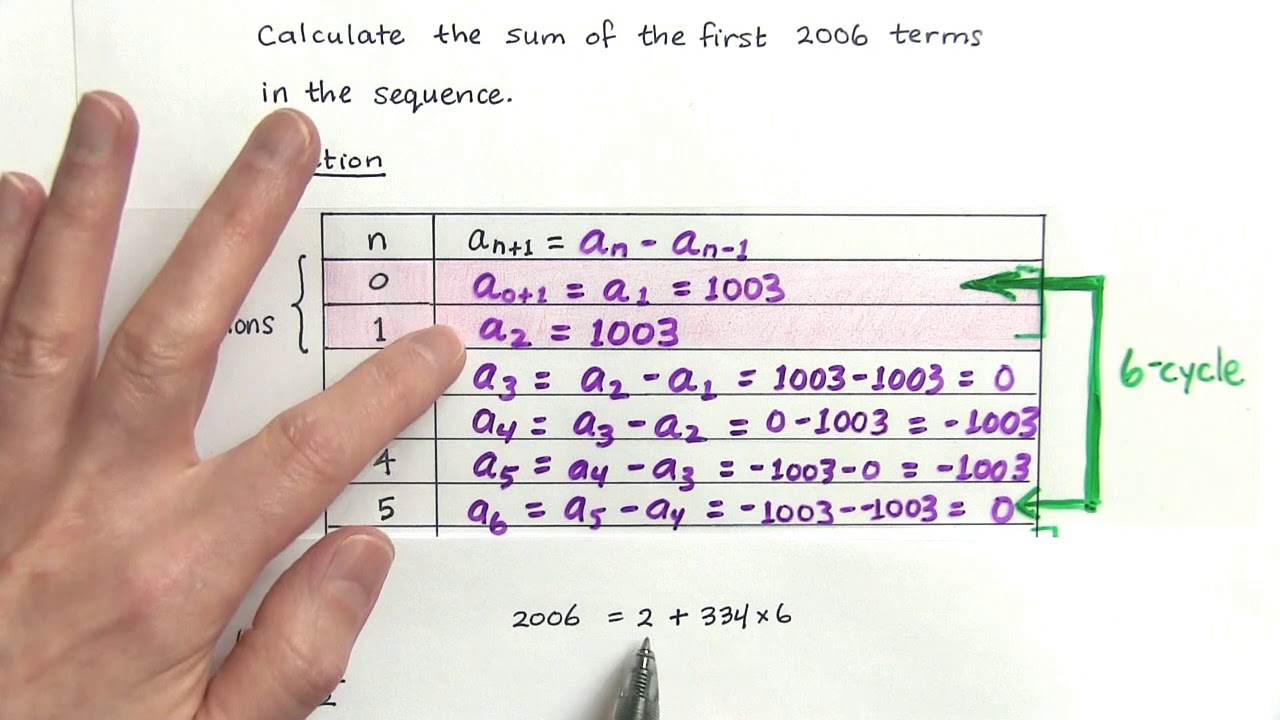 Calculate the sum of the first 2006 terms
in the sequence.
tion
n aₙ₊₁ = aₙ - aₙ₋₁
0 a₀₊₁ = a₁ = 1003
ons 1 a₂ = 1003
a₃ = a₂ - a₁ = 1003-1003 = 0
6-cycle
a₄ = a₃ - a₂ = 0-1003 = -1003
4 a₅ = a₄ - a₃ = -1003-0 = -1003
5 a₆ = a₅ - a₄ = -1003--1003 = 0
2006 = 2 + 334×6